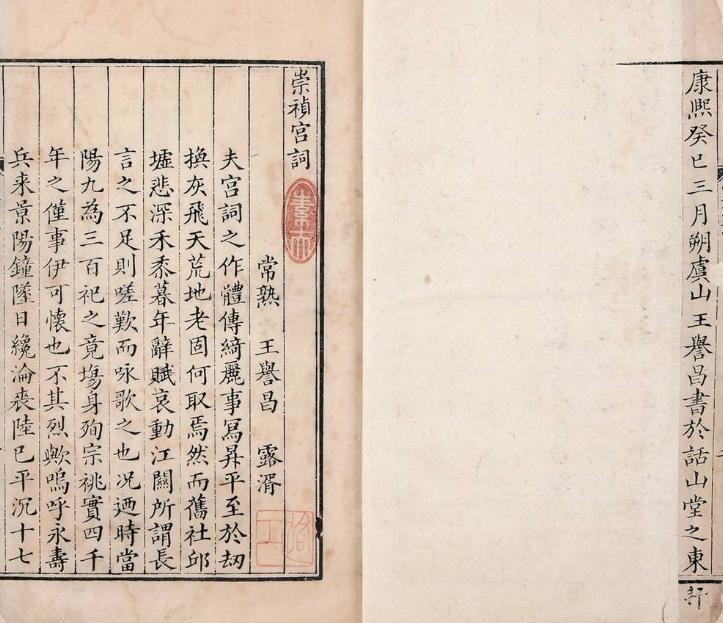 康熙癸巳三月朔虞山王譽昌書於話山堂之東
崇禎宮詞
常熟 王譽昌 露湑
夫宮詞之作體傳綺麗事寫昇平至於刧
換灰飛天荒地老固何取焉然而舊社邱
墟悲深禾黍暮年辭賦哀動江關所謂長
言之不足則嗟歎而咏歌之也况迺時當
陽九為三百祀之竟塲身殉宗祧實四千
年之僅事伊可懷也不其烈歟嗚呼永壽
兵来景陽鐘墜日纔淪喪陸已平沉十七